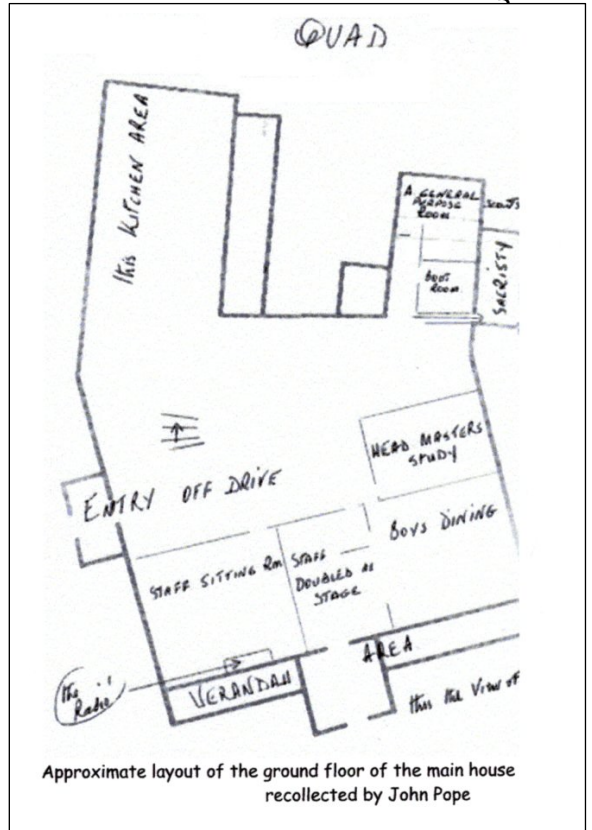 QUAD
this KITCHEN AREA
A GENERAL
PURPOSE
ROOM
SCOUTS
BOOT
ROOM
SACRISTY
HEAD MASTERS
STUDY
ENTRY OFF DRIVE
BOYS DINING
STAFF SITTING Rm
STAFF
DOUBLED AS
STAGE
AREA
the
Radio
VERANDAH
this the View of
Approximate layout of the ground floor of the main house
recollected by John Pope